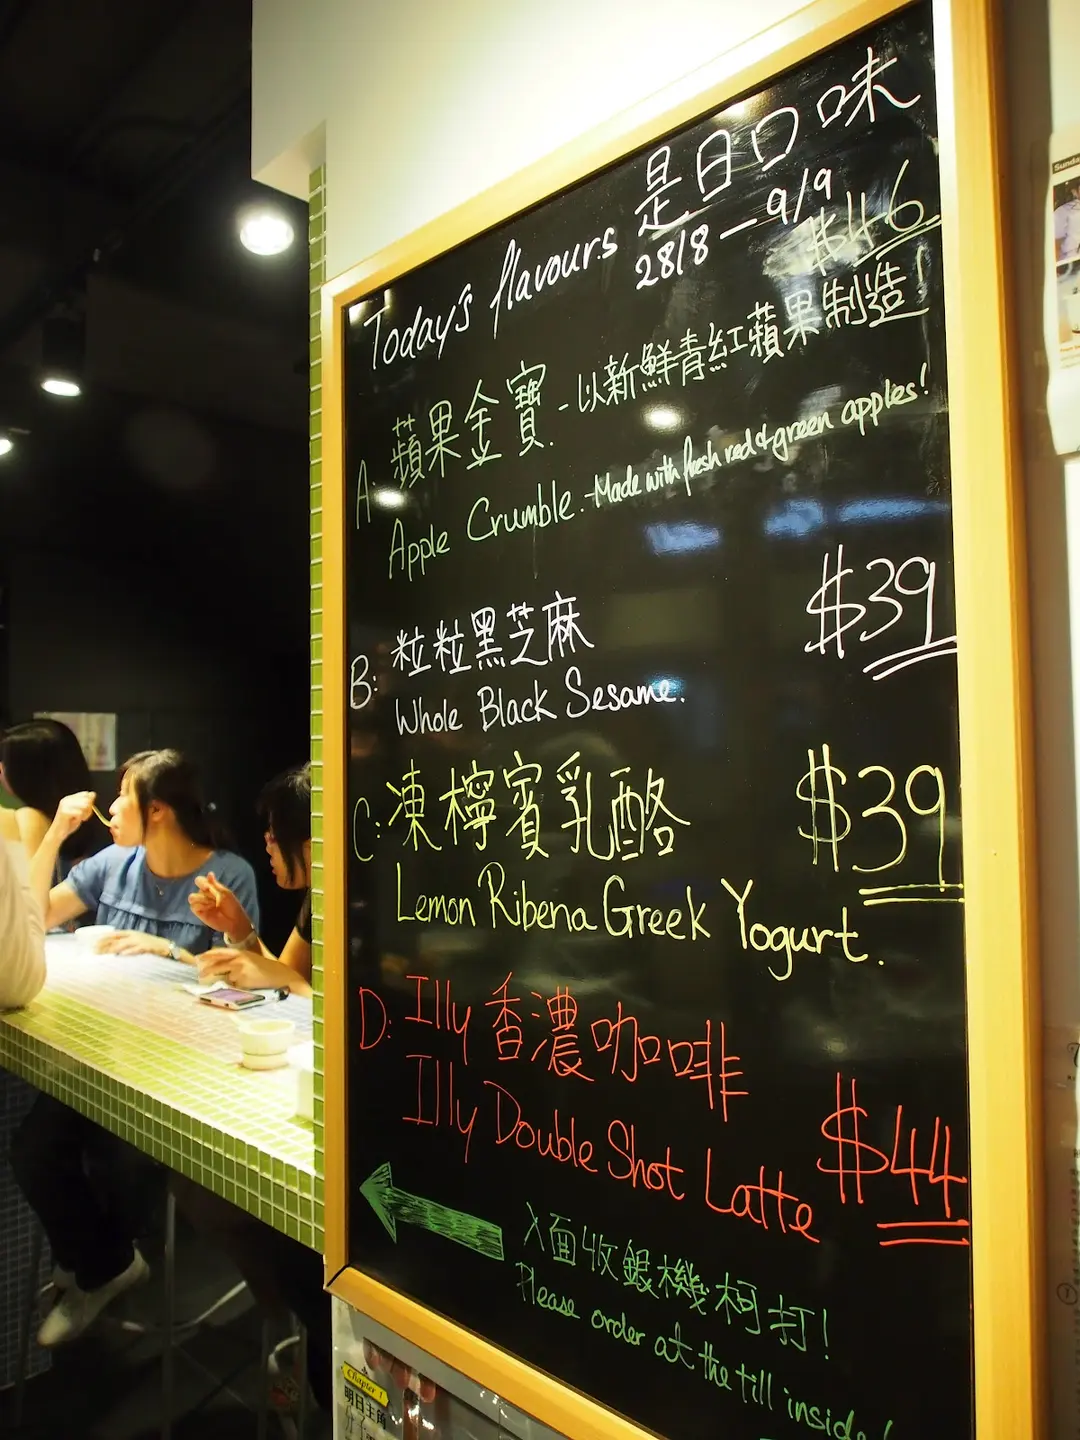 Today's flavours 是日口味
28/8 — 9/9
$46
A: 蘋果金寶 - 以新鮮青紅蘋果制造!
Apple Crumble. - Made with fresh red & green apples!
B: 粒粒黑芝麻 $39
Whole Black Sesame.
C: 凍檸賓乳酪 $39
Lemon Ribena Greek Yogurt.
D: Illy 香濃咖啡
Illy Double Shot Latte $44
入面收銀機柯打!
Please order at the till inside!
Chapter 1
明日主角